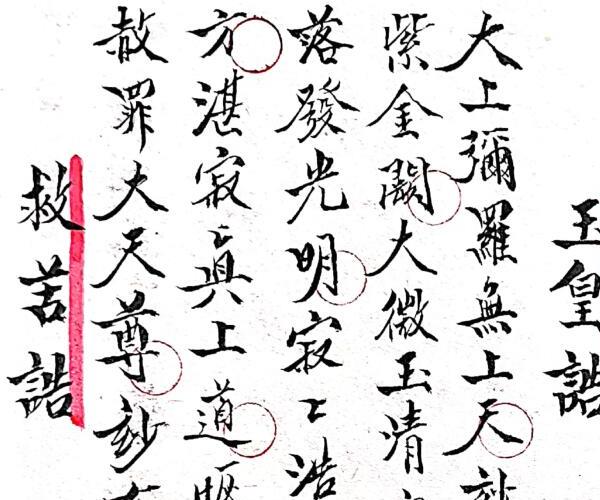 玉皇誥
大上彌羅無上天
紫金闕大微玉清
落發光明寂〻浩
方湛寂〻真上道
赦罪大天尊玅
救苦誥